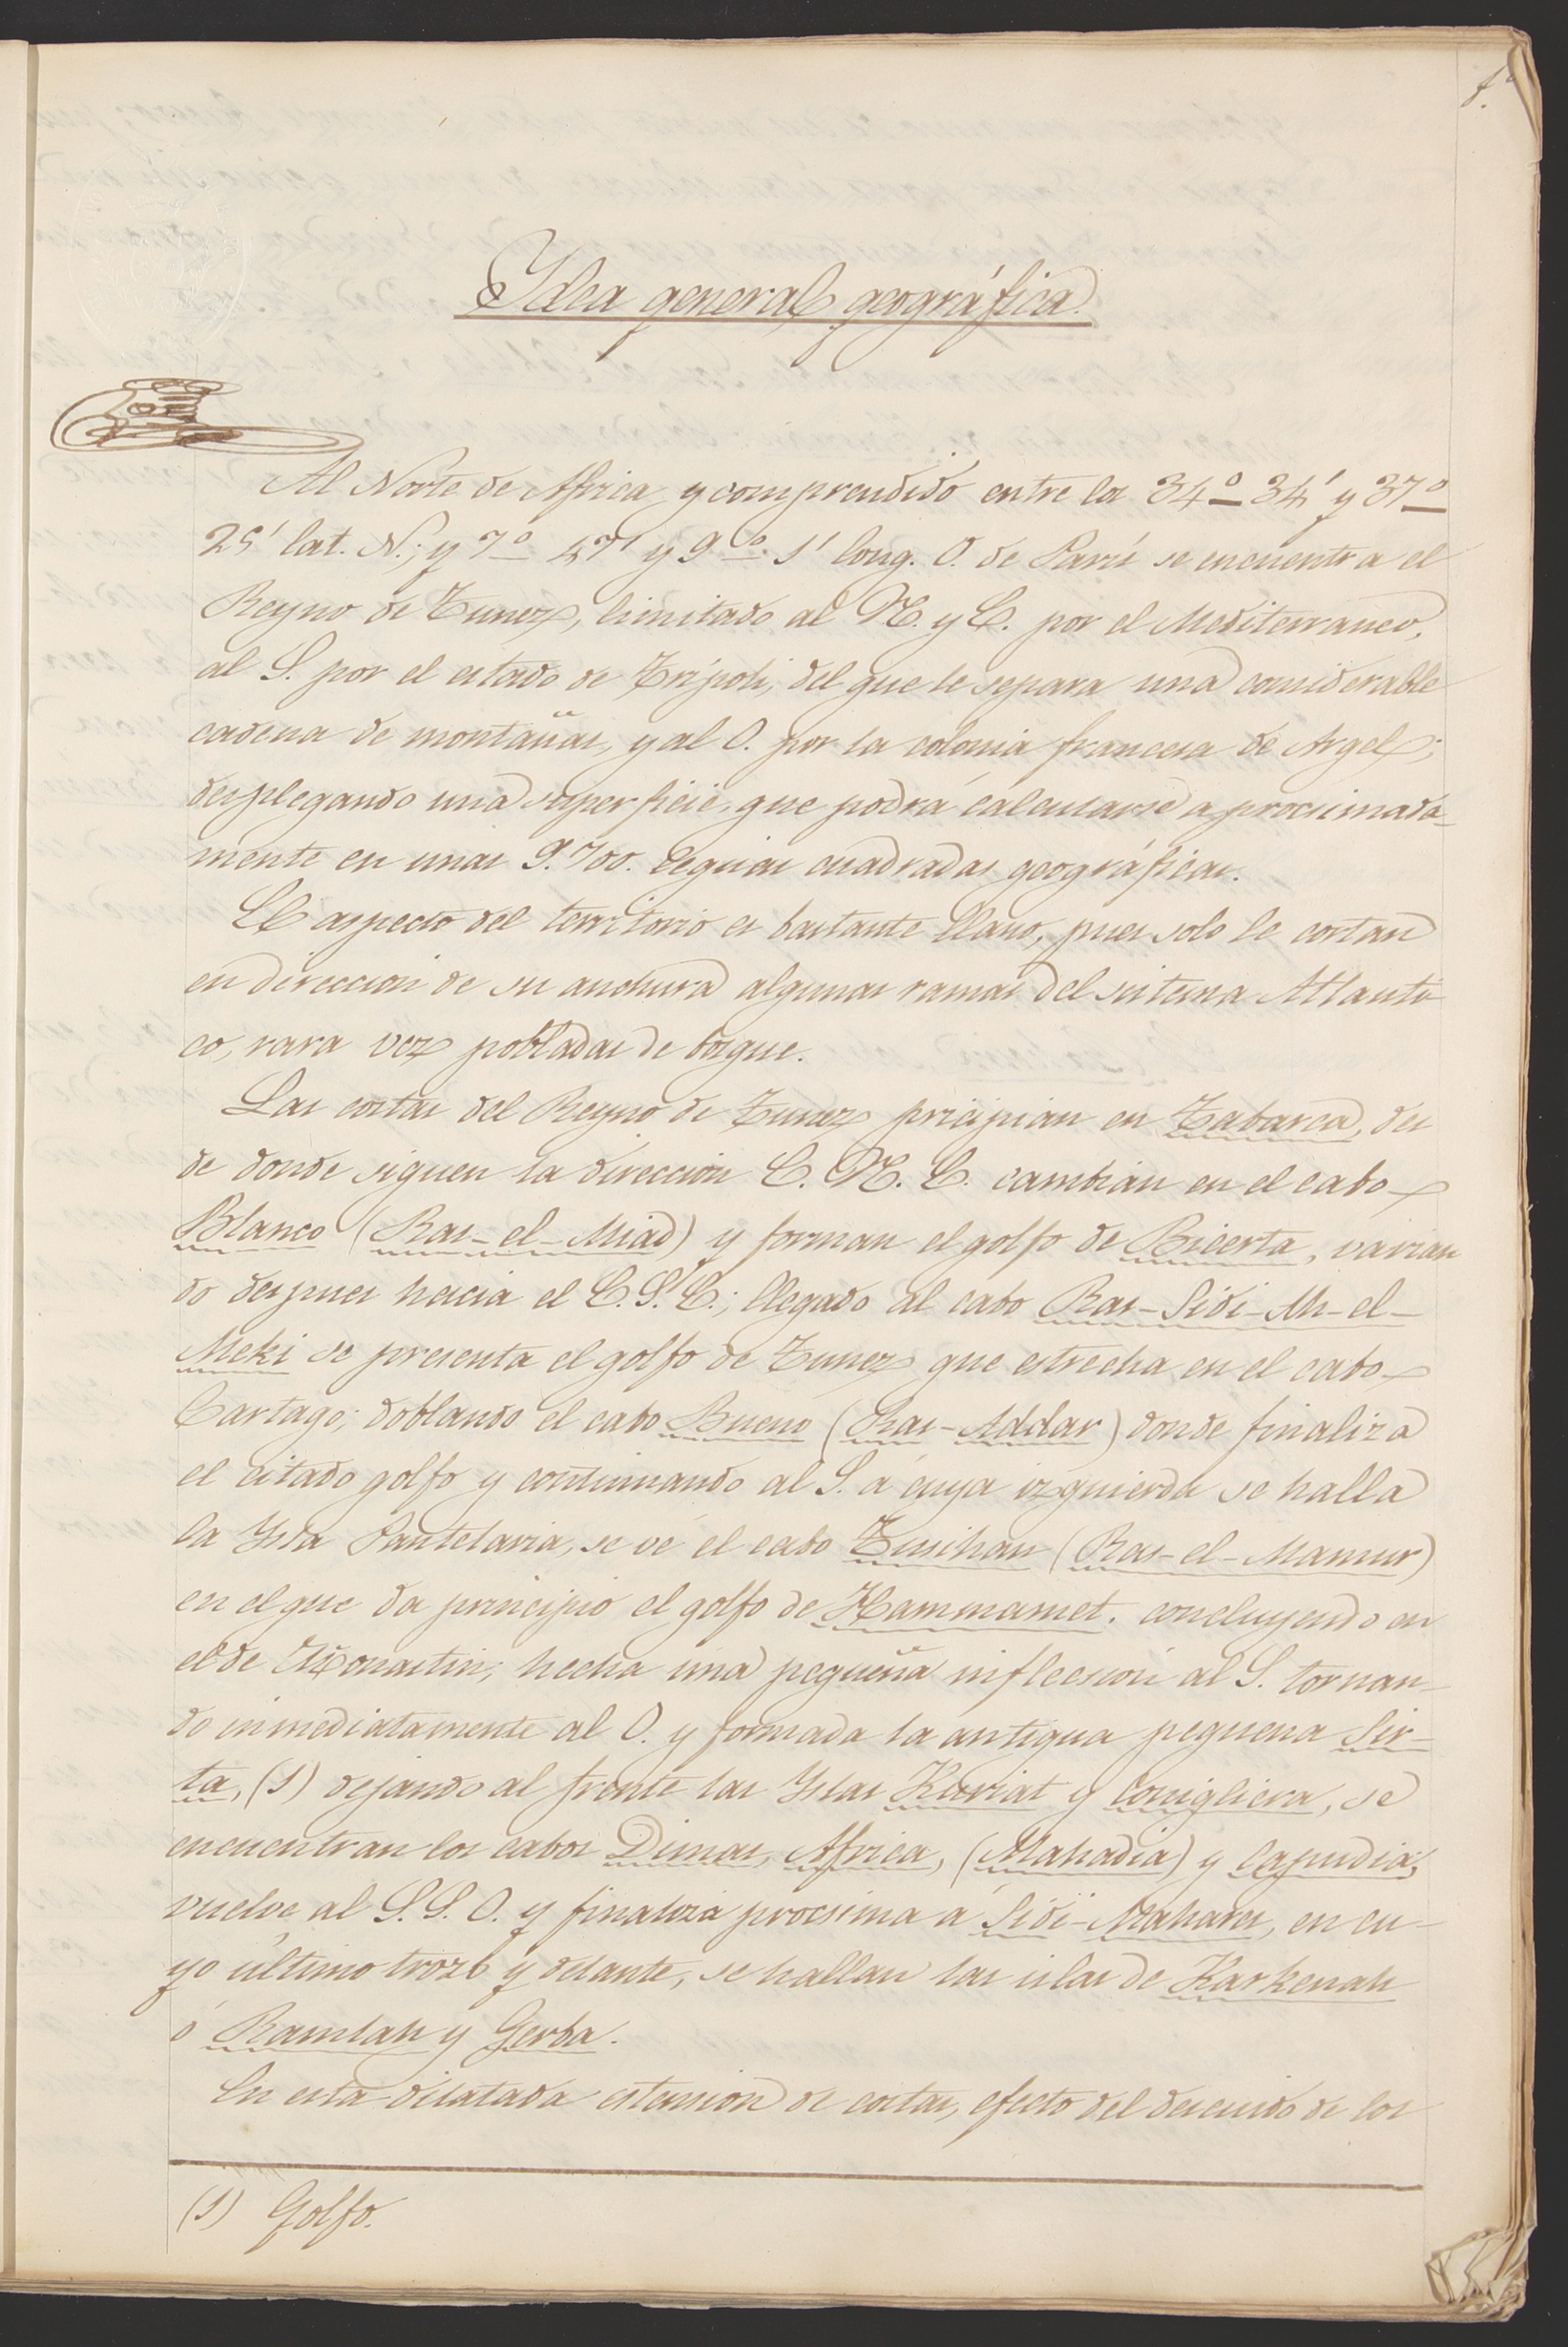 1.º
Ydea general geográfica.
Al Norte de Africa y comprendido entre los 34º 34' y 37º
25' lat. N.; y 7º 47' y 9º 1' long. O. de Paris se encuentra el
Reyno de Tunez, limitado al N. y E. por el Mediterraneo,
al S. por el estado de Trípoli, del que le separa una considerable
cadena de montañas, y al O. por la colonia francesa de Argel;
desplegando una superficie, que podrá calcularse aprocsimada-
mente en unas 9.700. leguas cuadradas geográficas.
El aspecto del territorio es bastante llano, pues solo le cortan
en direccion de su anchura algunas ramas del sistema Atlanti
co, rara vez pobladas de bosque.
Las costas del Reyno de Tunez pricipian en Tabarca, des
de donde siguen la dirección E. N. E. cambian en el cabo
Blanco (Ras-el-Miad) y forman el golfo de Bicerta, varian
do despues hacia el E. S. E.; llegado al cabo Ras-Sidi-Ah-el-
Meki se presenta el golfo de Tunez que estrecha en el cabo
Cartago; doblando el cabo Bueno (Ras-Addar) donde finaliza
el citado golfo y continuando al S. á cuya izquierda se halla
la Ysla Pantelaria, se vé el cabo Tusihan (Ras-el-Mamur)
en el que da principio el golfo de Hammamet. concluyendo en
el de Monastir; hecha una pequeña inflecsion al S. tornan-
do inmediatamente al O. y formada la antigua pequena Sir-
ta, (1) dejando al frente las Yslas Kuriat y Conigliera, se
encuentran los cabos Dimas, Africa, (Mahadia) y Capudia,
vuelve al S. S. O. y finaliza procsima á Sidi-Mahares, en cu-
yo último trozo y delante, se hallan las islas de Karkenah
ó Ramlah y Gerba.
En esta dilatada estension de costas, efecto del descuido de los
(1) Golfo.